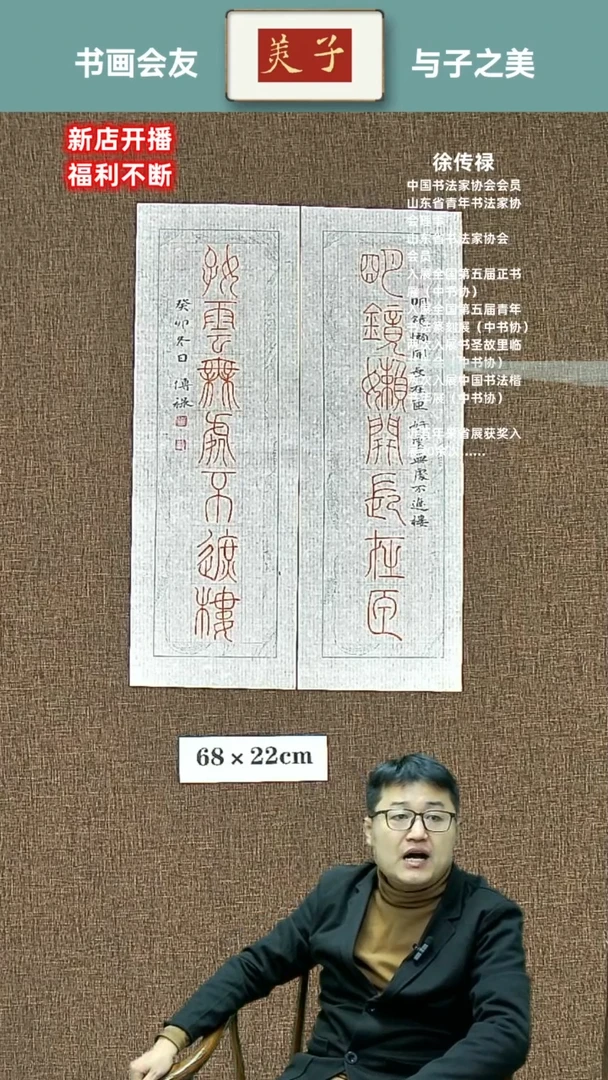 书画会友
美子
与子之美
新店开播
福利不断
徐传禄
中国书法家协会会员
山东省青年书法家协
山东省书法家协会
会员
入展全国第五届正书
（中书协）
全国第五届青年
展（中书协）
展书圣故里临
（中书协）
入展中国书法楷
展（中书协）
省展获奖入
明鏡嬾開長在匣
好雲無處不遮樓
癸卯冬日 傳祿
68×22cm